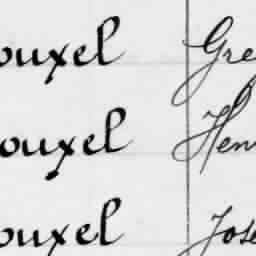 ouxel Gre
ouxel Hen
ouxel Jose